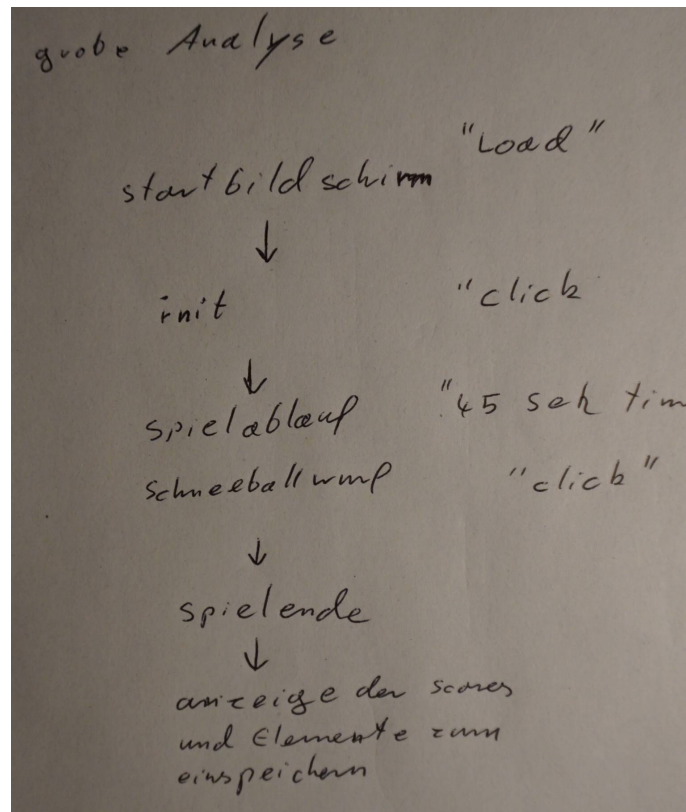 grobe Analyse
"Load"
startbildschirm
↓
init "click
↓
spielablauf "45 sek tim
schneeballwurf "click"
↓
spielende
↓
anzeige der scores
und Elemente zum
einspeichern